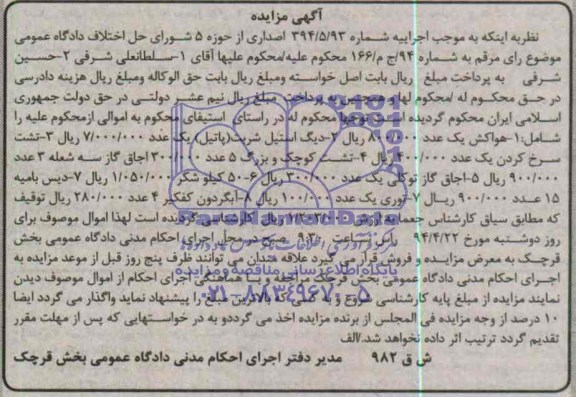 آگهی مزایده
نظریه اینکه به موجب اجراییه شماره ۳۹۴/۵/۹۳ اصداری از حوزه ۵ شورای حل اختلاف دادگاه عمومی
موضوع رای مرقم به شماره ۹۴/ج م/۱۶۶ محکوم علیه/محکوم علیها آقای ۱-سلطانعلی شرفی ۲-حسین
شرفی به پرداخت مبلغ ریال بابت اصل خواسته ومبلغ ریال بابت حق الوکاله ومبلغ ریال هزینه دادرسی
در حق محکوم له /محکوم لها و همچنین به پرداخت مبلغ ریال نیم عشر دولتی در حق دولت جمهوری
اسلامی ایران محکوم گردیده است محکوم له در راستای استیفای محکوم به اموالی ازمحکوم علیه را
شامل:۱-هواکش یک عدد ۸۰۰/۰۰۰ ریال ۲-دیگ استیل شربت(پاتیل) یک عدد ۷/۰۰۰/۰۰۰ ریال ۳-تشت
سرخ کردن یک عدد ۴۰۰/۰۰۰ ریال ۴-تشت کوچک و بزرگ ۵ عدد ۳۰۰/۰۰۰ اجاق گاز سه شعله ۳ عدد
۹۰۰/۰۰۰ ریال ۵-اجاق گاز توکلی یک عدد ۳۰۰/۰۰۰ ریال ۶-۵۰ کیلو شکر ۱/۰۵۰/۰۰۰ ریال ۷-دیس بامیه
۱۵ عدد ۹۰۰/۰۰۰ ریال ۷-آوری یک عدد ۱۰۰/۰۰۰ ریال ۸-آبگردون کفگیر ۴ عدد ۲۸۰/۰۰۰ ریال توقیف
که مطابق سیاق کارشناس جمعا به ارزش ریال کارشناسی گردیده است لهذا اموال موصوف برای
روز دوشنبه مورخ ۹۴/۴/۲۲ راس ساعت ۹:۳۰ صبح در محل اجرای احکام مدنی دادگاه عمومی بخش
قرچک به معرض مزایده و فروش قرار می گیرد علاقه مندان می توانند ظرف پنج روز قبل از موعد مزایده به
اجرای احکام مدنی دادگاه عمومی بخش قرچک مراجعه و با هماهنگی اجرای احکام از اموال موصوف دیدن
نمایند مزایده از مبلغ پایه کارشناسی شروع و به کسی که بالاترین مبلغ را پیشنهاد نماید واگذار می گردد ایضا
۱۰ درصد از وجه مزایده فی المجلس از برنده مزایده اخذ می گرددو به در خواستهایی که پس از مهلت مقرر
تقدیم گردد ترتیب اثر داده نخواهد شد./الف
ش ق ۹۸۲ مدیر دفتر اجرای احکام مدنی دادگاه عمومی بخش قرچک
پایگاه اطلاع رسانی مناقصه و مزایده
۰۲۱-۸۸۳۴۹۶۷۰-۵